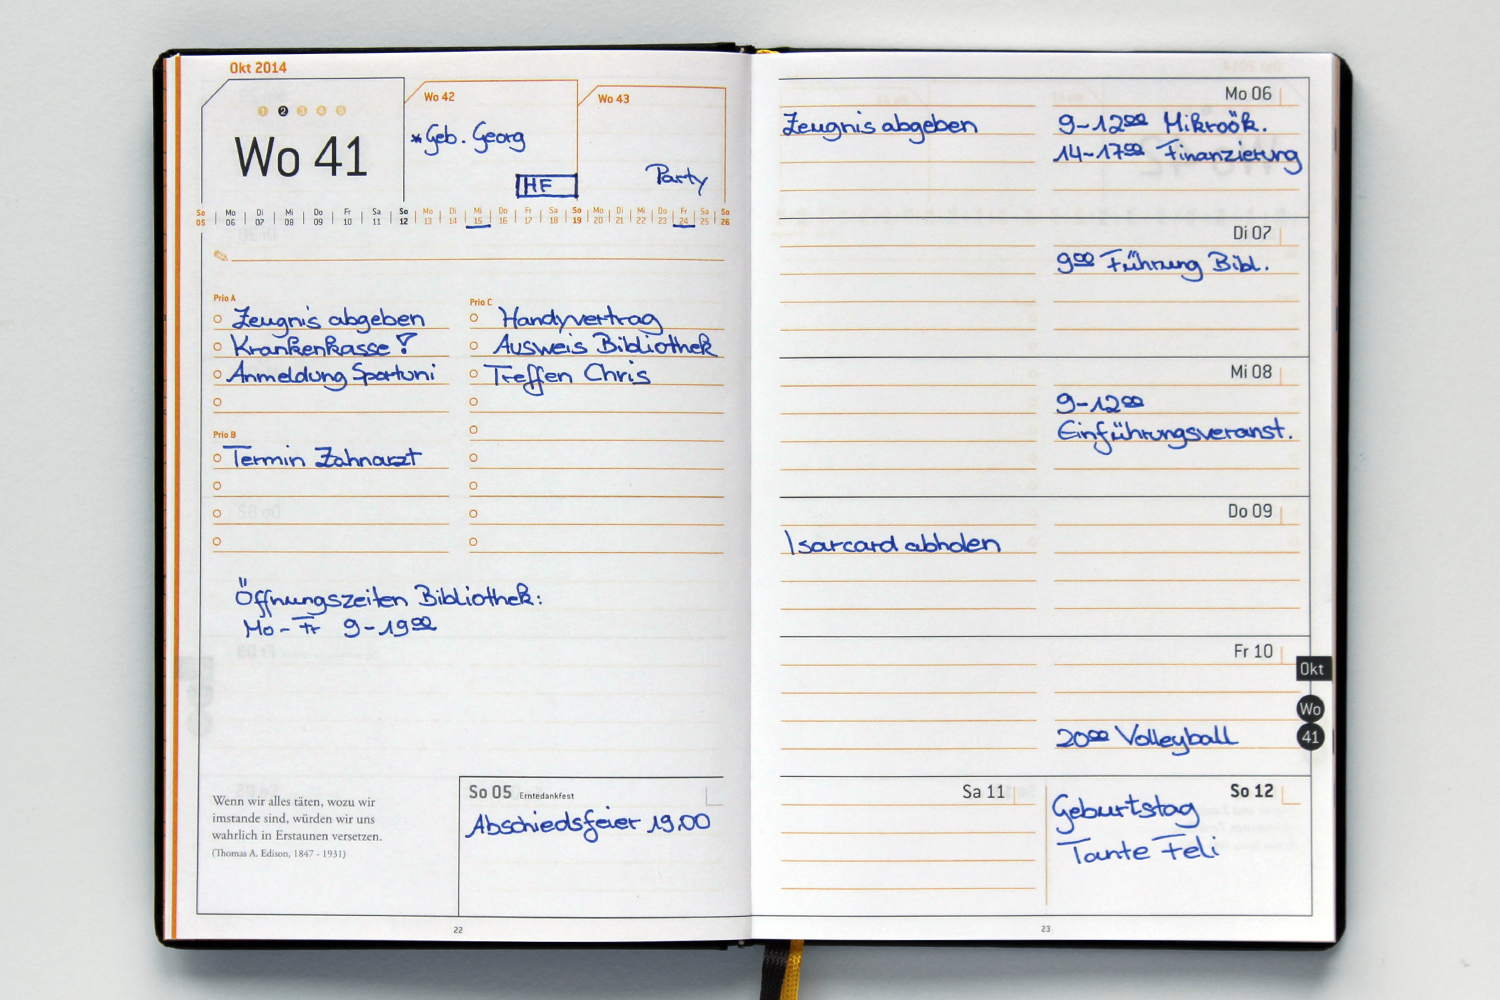 Okt 2014
1 2 3 4 5
Wo 41
Wo 42
*Geb. Georg
HF
Wo 43
Party
So Mo Di Mi Do Fr Sa So Mo Di Mi Do Fr Sa So Mo Di Mi Do Fr Sa So
05 06 07 08 09 10 11 12 13 14 15 16 17 18 19 20 21 22 23 24 25 26
Prio A
Zeugnis abgeben
Krankenkasse!
Anmeldung Sportuni
Prio B
Termin Zahnarzt
Prio C
Handyvertrag
Ausweis Bibliothek
Treffen Chris
Öffnungszeiten Bibliothek:
Mo - Fr 9 - 19 00
Wenn wir alles täten, wozu wir
imstande sind, würden wir uns
wahrlich in Erstaunen versetzen.
(Thomas A. Edison, 1847 - 1931)
So 05 Erntedankfest
Abschiedsfeier 19.00
22
Mo 06
Zeugnis abgeben
9-12 00 Mikroök.
14-17 00 Finanzierung
Di 07
9 00 Führung Bibl.
Mi 08
9-12 00
Einführungsveranst.
Do 09
Isarcard abholen
Fr 10
20 00 Volleyball
Okt
Wo
41
Sa 11
So 12
Geburtstag
Tante Feli
23